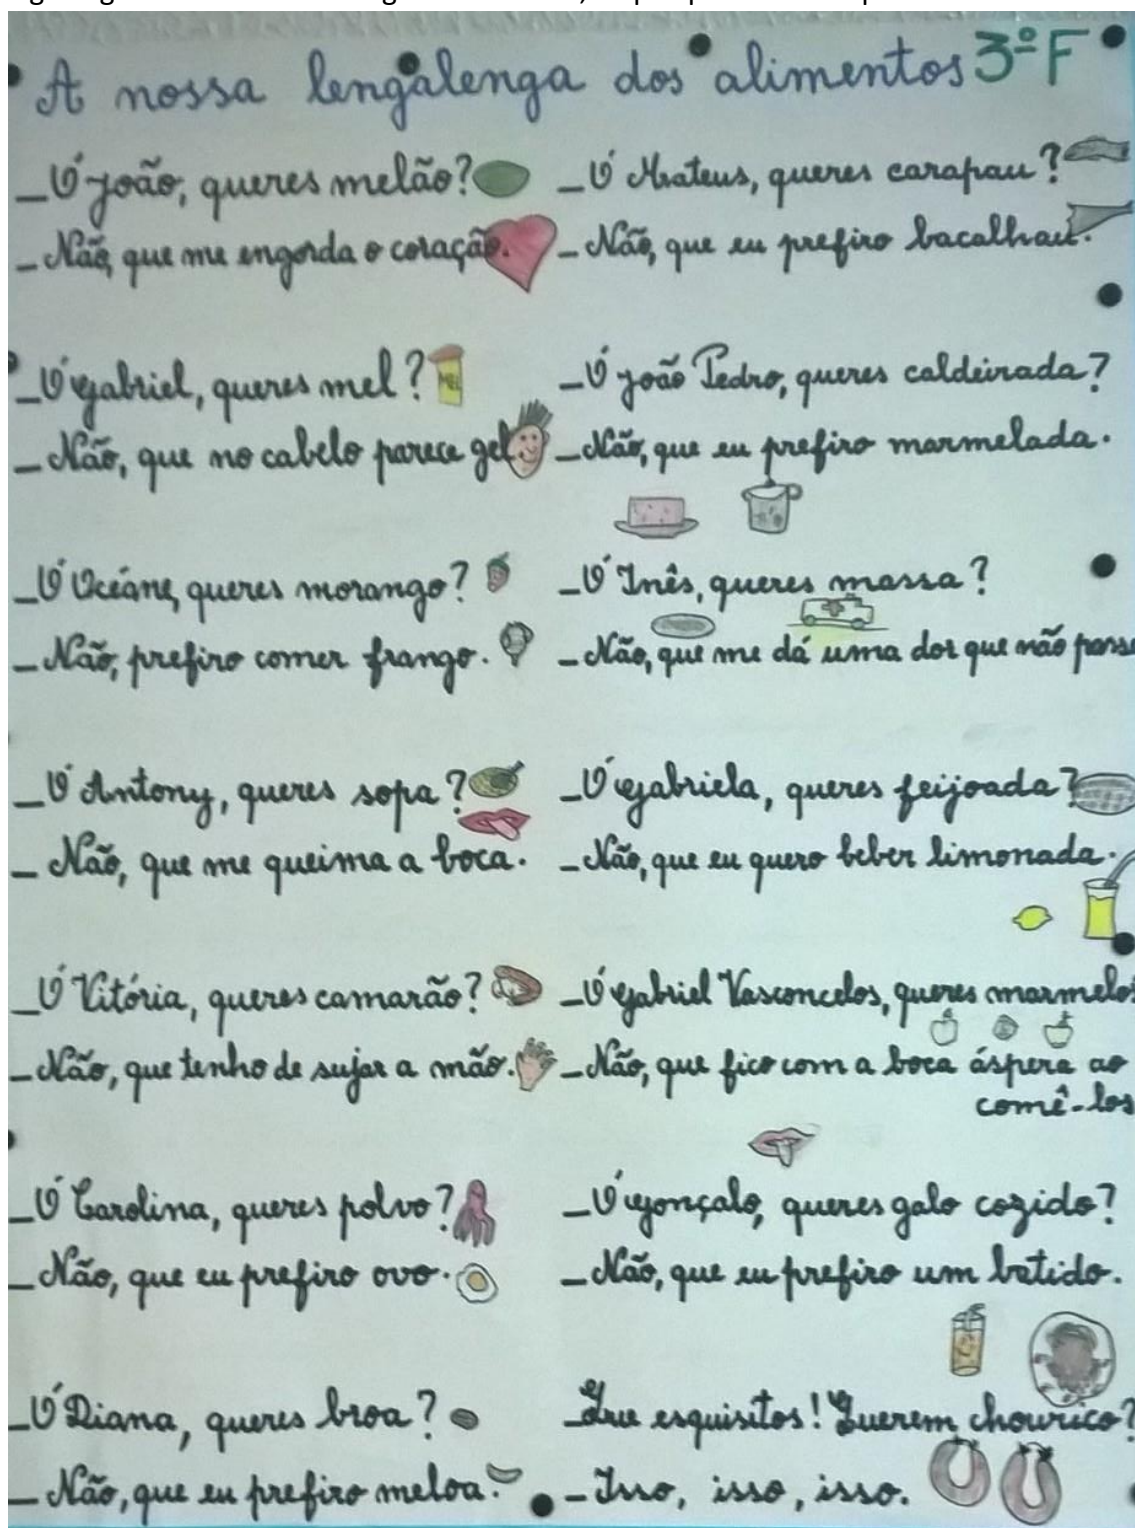 A nossa lengalenga dos alimentos 3ºF
_Ó João, queres melão?
_Não, que me engorda o coração.
_Ó Gabriel, queres mel?
MEL
_Não, que no cabelo parece gel.
_Ó Océane, queres morango?
_Não, prefiro comer frango.
_Ó Antony, queres sopa?
_Não, que me queima a boca.
_Ó Vitória, queres camarão?
_Não, que tenho de sujar a mão.
_Ó Carolina, queres polvo?
_Não, que eu prefiro ovo.
_Ó Diana, queres broa?
_Não, que eu prefiro meloa.
_Ó Mateus, queres carapau?
_Não, que eu prefiro bacalhau.
_Ó João Pedro, queres caldeirada?
_Não, que eu prefiro marmelada.
_Ó Inês, queres massa?
_Não, que me dá uma dor que não passa
_Ó Gabriela, queres feijoada?
_Não, que eu quero beber limonada.
_Ó Gabriel Vasconcelos, queres marmelos
_Não, que fico com a boca áspera ao
comê-los
_Ó Gonçalo, queres galo cozido?
_Não, que eu prefiro um batido.
_Que esquisitos! Querem chouriço?
_Isso, isso, isso.